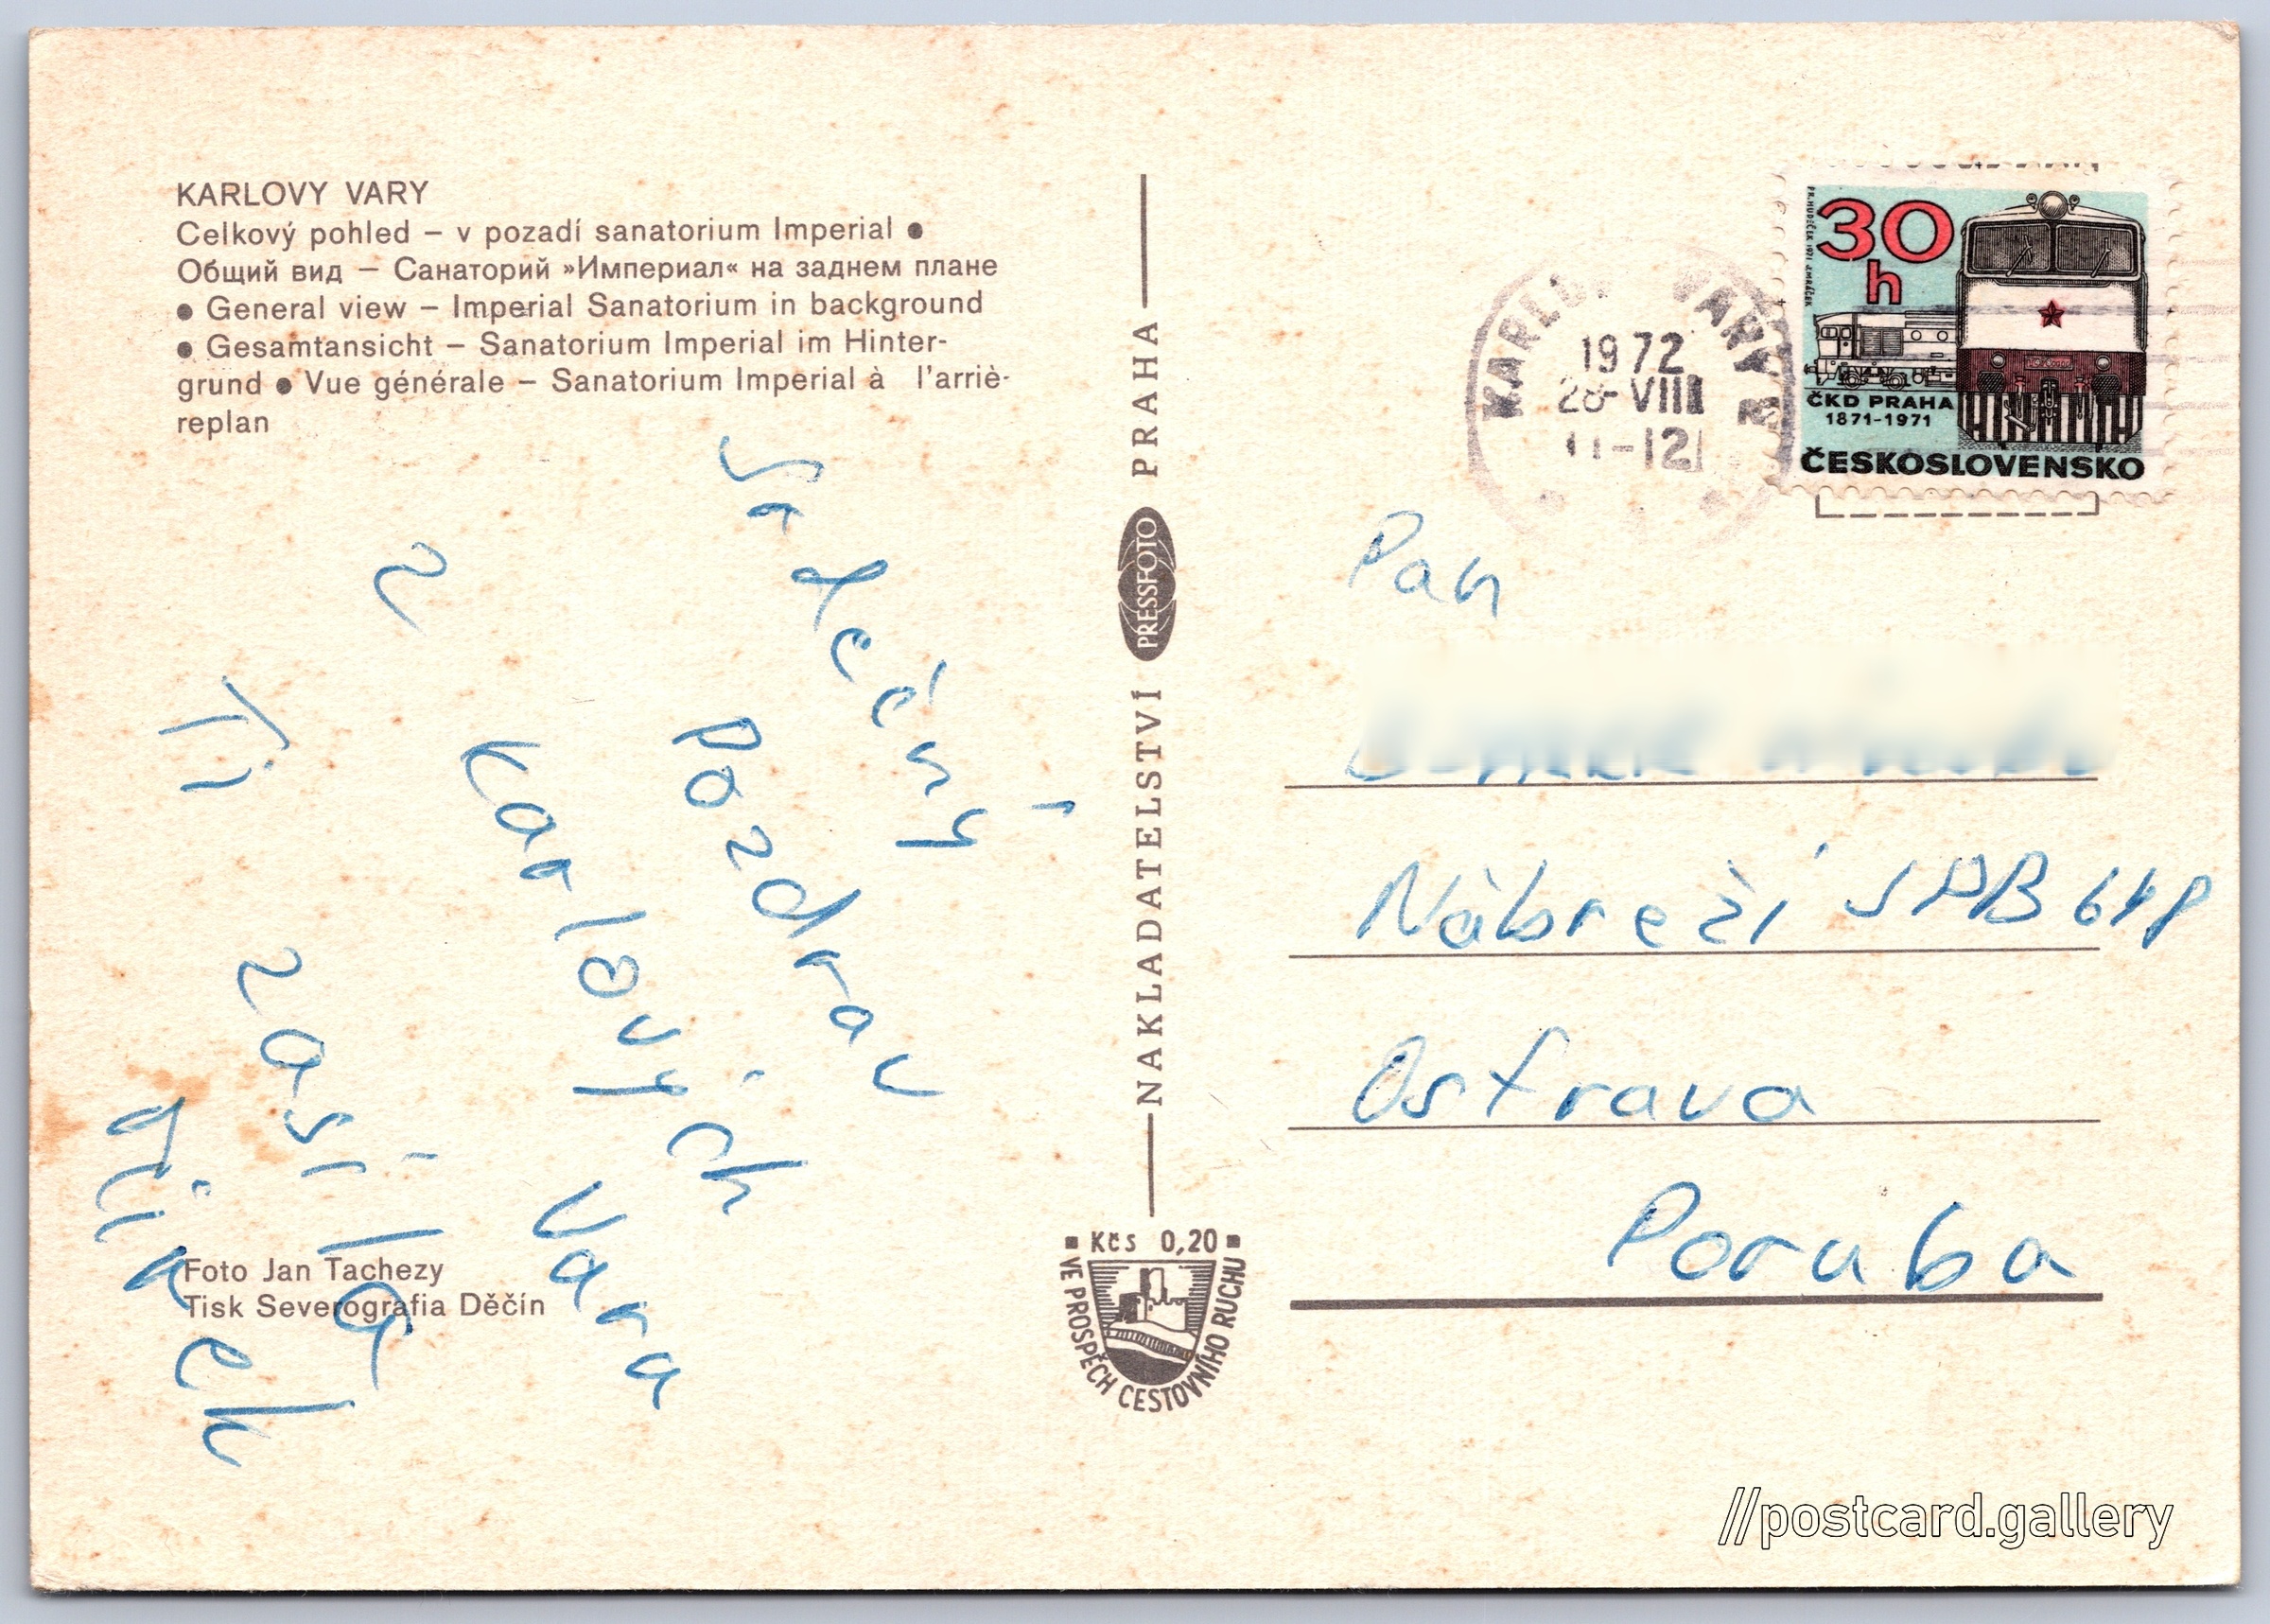 KARLOVY VARY
Celkový pohled – v pozadí sanatorium Imperial ●
Общий вид – Санаторий »Империал« на заднем плане
● General view – Imperial Sanatorium in background
● Gesamtansicht – Sanatorium Imperial im Hinter-
grund ● Vue générale – Sanatorium Imperial à l'arriè-
replan
Srdečný
Pozdrav
z Karlových Vara
Ti zasílá
Foto Jan Tachezy
Tisk Severografia Děčín
NAKLADATELSTVÍ PRESSFOTO PRAHA
Kčs 0,20
VE PROSPĚCH CESTOVNÍHO RUCHU
KARLOVY VARY
1972
28-VIII
11-12
30
h
ČKD PRAHA
1871-1971
ČESKOSLOVENSKO
Pan
Nábreží SPB
Ostrava
Poruba
//postcard.gallery